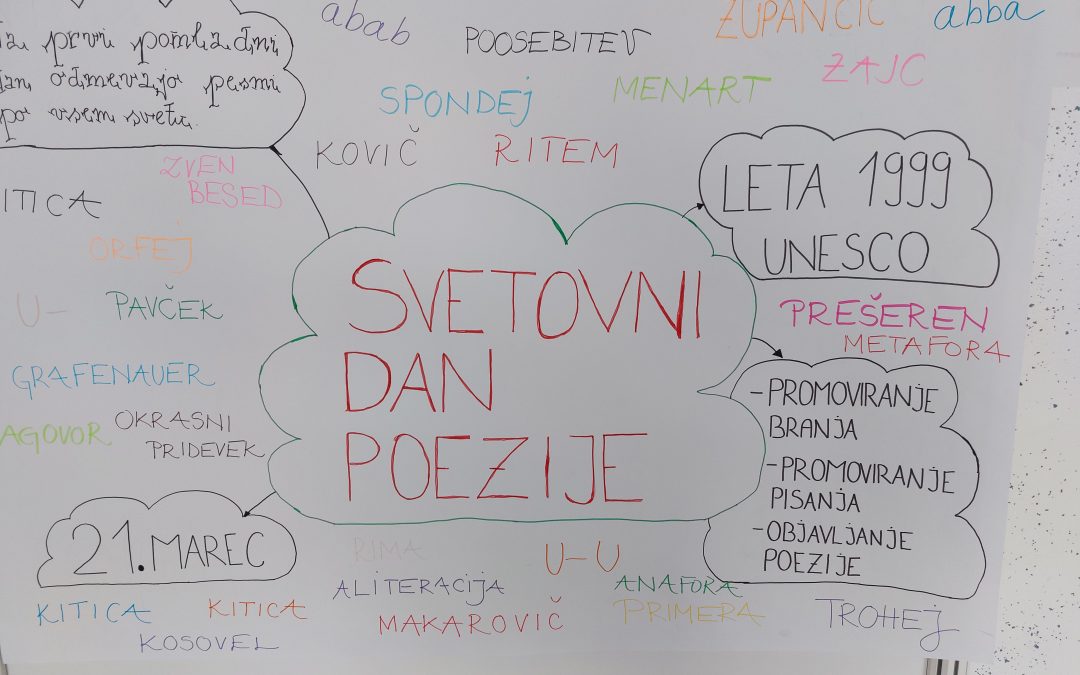 abab
ŽUPANČIČ
abba
prvi pomladni
dan odmevajo pesmi
po vsem svetu.
POOSEBITEV
SPONDEJ
MENART
ZAJC
KOVIČ
RITEM
ZVEN
BESED
LETA 1999
UNESCO
ITICA
ORFEJ
U–
PAVČEK
SVETOVNI
DAN
POEZIJE
PREŠEREN
METAFORA
GRAFENAUER
AGOVOR
OKRASNI
PRIDEVEK
-PROMOVIRANJE
BRANJA
-PROMOVIRANJE
PISANJA
-OBJAVLJANJE
POEZIJE
21. MAREC
RIMA
U–U
ALITERACIJA
ANAFORA
KITICA
KITICA
MAKAROVIČ
PRIMERA
TROHEJ
KOSOVEL